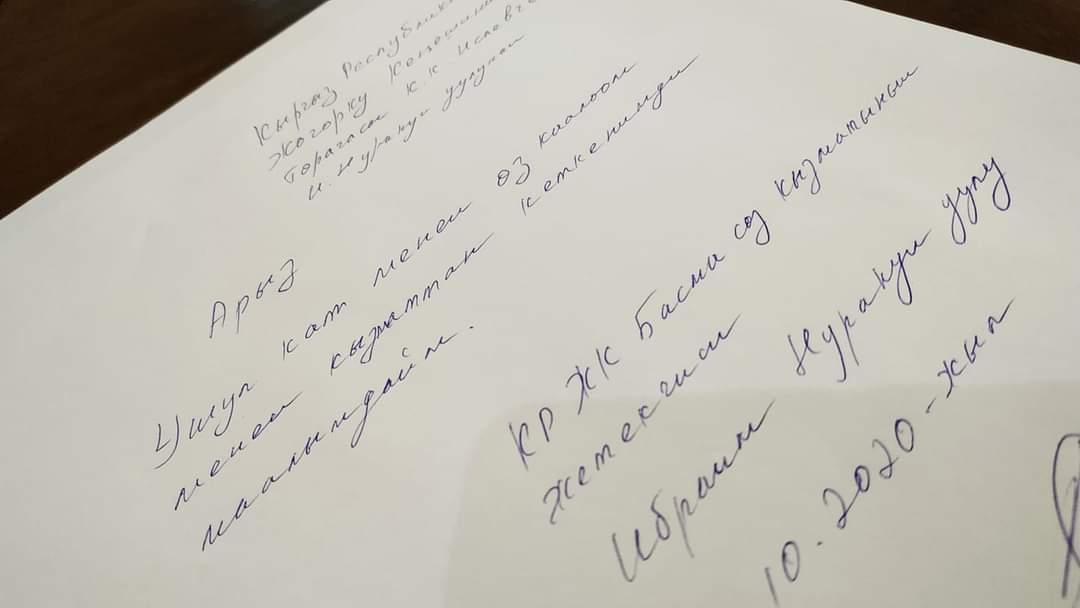 Кыргыз Республика
Жогорку Кеңешинин
Төрагасы К.К. Исаевге
И. Нуракун уулунан
Арыз
Ушул кат менен өз каалоом
менен кызматтан кеткенимди
маалымдайм.
КР ЖК Басма сөз кызматынын
жетекчиси
Ибраим Нуракун уулу
10.2020-жыл